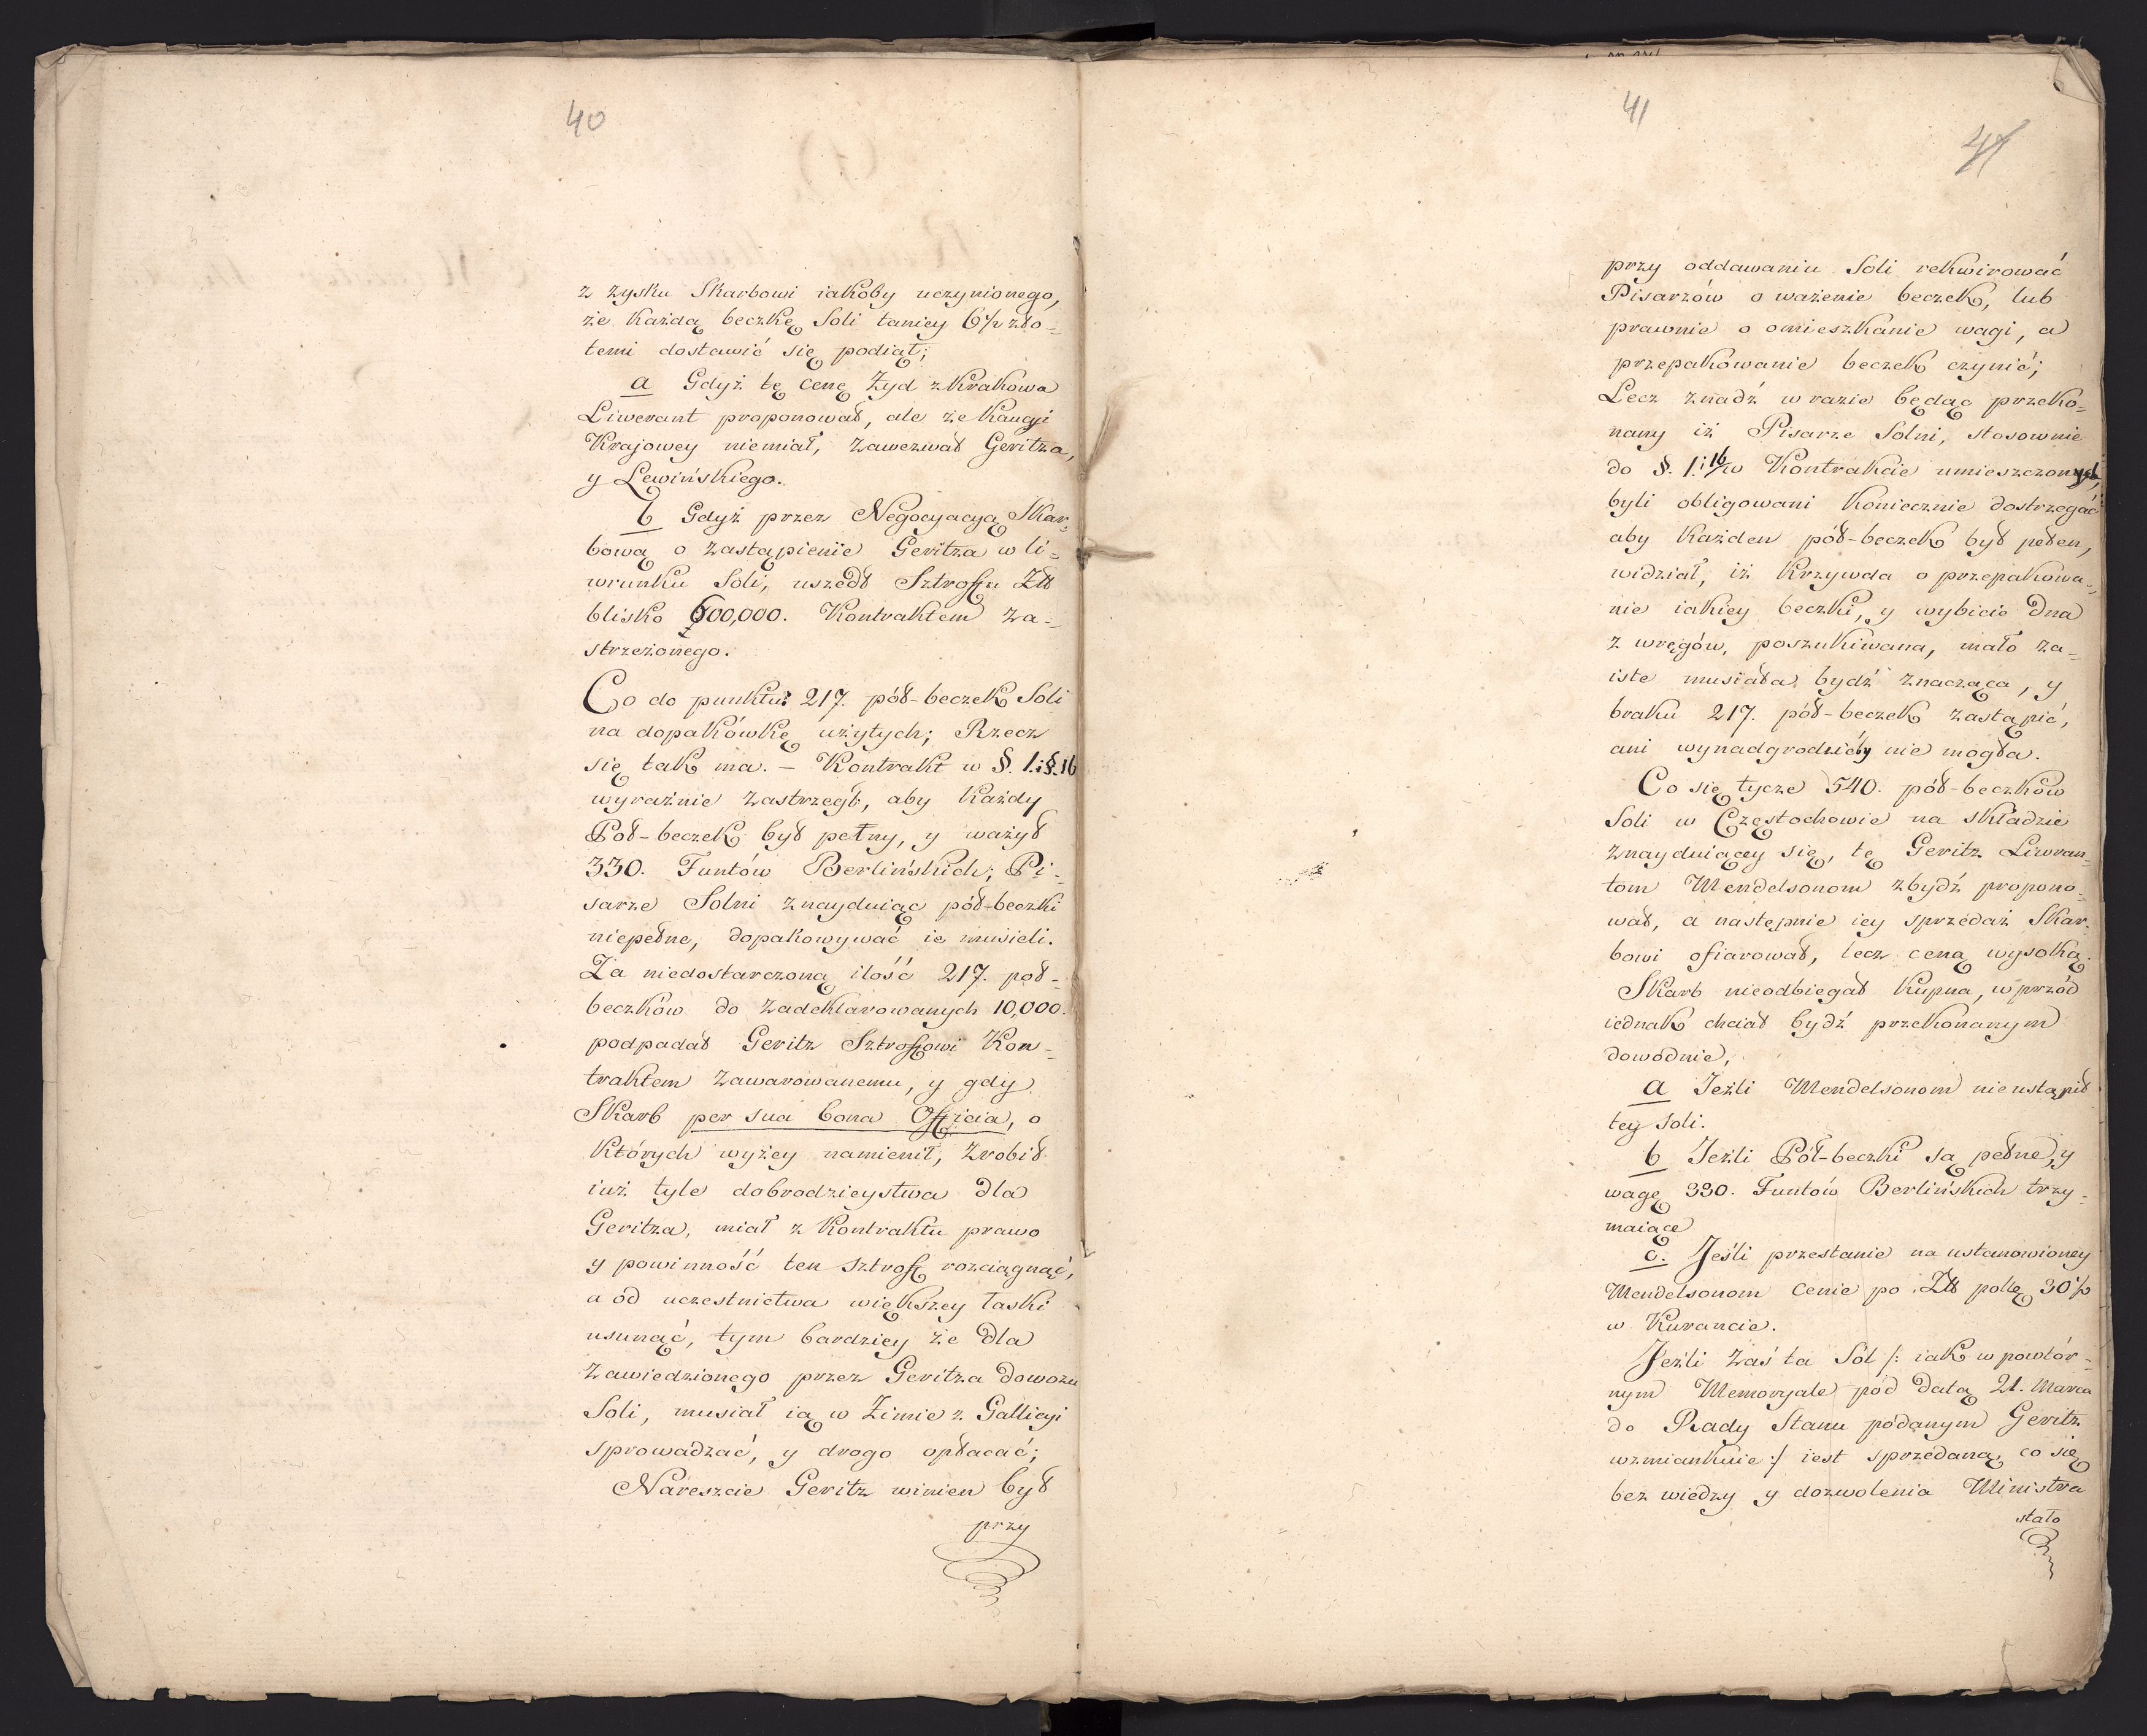 40
z zysku Skarbowi iakoby uczynionego,
że każdą beczkę Soli taniey 6½ zło=
temi dostawić się podiął;
a Gdyż tę cenę Żyd z Krakowa
Liwerant proponował, ale że Kaucyi
Krajowey niemiał, zawezwał Geritza,
y Lewińskiego.
b Gdyż przez Negocyacyą Skar=
bową o zastąpienie Geritza w li=
wrunku Soli, uszedł Sztroffu Złł
blisko 600,000. Kontraktem za=
strzeżonego.
Co do punktu: 217. pół-beczek Soli
na dopakówkę użytych; Rzecz
się tak ma. – Kontrakt w §. 1. i §. 16
wyraźnie zastrzegł, aby każdy
Poł-beczek był pełny, y ważył
330. Funtów Berlińskich; Pi=
sarze Solni znayduiąc pół-beczki
niepełne, dopakowywać ie musieli.
Za niedostarczoną ilość 217. poł=
beczków do zadeklarowanych 10,000.
podpadał Geritz Sztroffowi Kon=
traktem zawarowanemu, y gdy
Skarb per sua bona Officia, o
których wyżey namienił, zrobił
iuż tyle dobrodzieystwa dla
Geritza, miał z Kontraktu prawo
y powinność ten Sztroff rozciągnąć,
a od uczestnictwa większey łaski
usunąć, tym bardziey że dla
zawiedzionego przez Geritza dowozu
Soli, musiał ią w Zimie z Gallicyi
sprowadzać, y drogo opłacać;
Nareszcie Geritz winien był
przy
41
41
przy oddawaniu Soli rekwirować
Pisarzów o ważenie beczek, lub
prawnie o omieszkanie wagi, a
przepakowanie beczek czynić;
Lecz znadź w razie będąc przeko=
nany iż Pisarze Solni, stosownie
do §. 1. i 16 w Kontrakcie umieszczonych,
byli obligowani koniecznie dostrzegać
aby każden pół-beczek był pełen,
widział, iż krzywda o przepakowa=
nie iakiey beczki, y wybicie dna
z wręgów, poszukiwana, mało za=
iste musiała bydź znacząca, y
braku 217. pół-beczek zastąpić,
ani wynadgrodzićby nie mogła.
Co się tycze 540. pół-beczków
Soli w Częstochowie na składzie
znayduiącey się, tę Geritz Liwran=
tom Mendelsonom zbydź propono=
wał, a następnie iey sprzedaż Skar=
bowi ofiarował, lecz ceną wysoką.
Skarb nieodbiegał Kupna, wprzód
iednak chciał bydź przekonanym
dowodnie,
a Jeżli Mendelsonom nieustąpił
tey Soli.
b Jeżli Pół-beczki są pełne, y
wagę 330. Funtów Berlińskich trzy=
maiące
c. Jeśli przestanie na ustanowioney
Mendelsonom cenie po Złł polłę 30½
w Kurancie.
Jeżli zaś ta Sól /: iak w powtór=
nym Memoryale pod datą 21. Marca
do Rady Stanu podanym Geritz
wzmiankuie :/ iest sprzedaną, co się
bez wiedzy y dozwolenia Ministra
stało